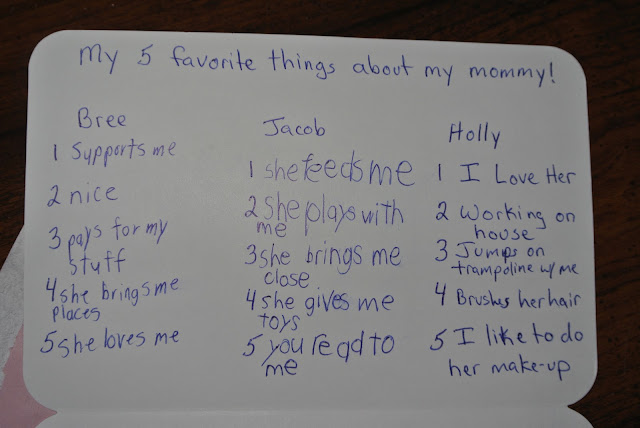 My 5 favorite things about my mommy!
Bree
1 Supports me
2 nice
3 pays for my
stuff
4 she brings me
places
5 she loves me
Jacob
1 she feeds me
2 She plays with
me
3 she brings me
close
4 she gives me
toys
5 you read to
me
Holly
1 I Love Her
2 Working on
house
3 Jumps on
trampoline w/ me
4 Brushes her hair
5 I like to do
her make-up